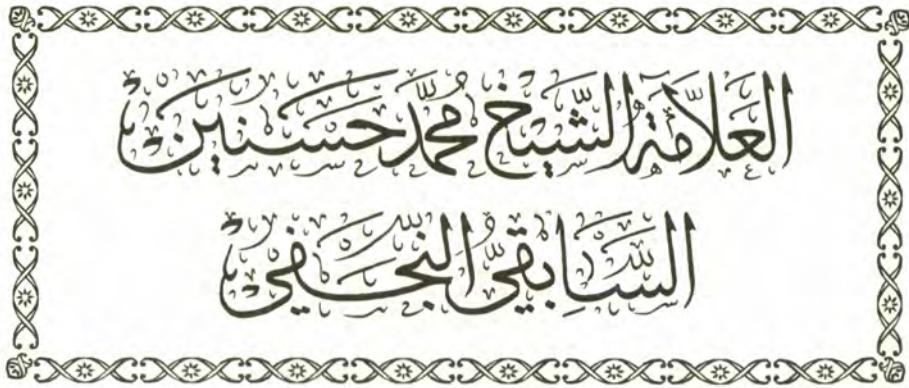 العلامة الشيخ محمد حسنين
السابقي النجفي